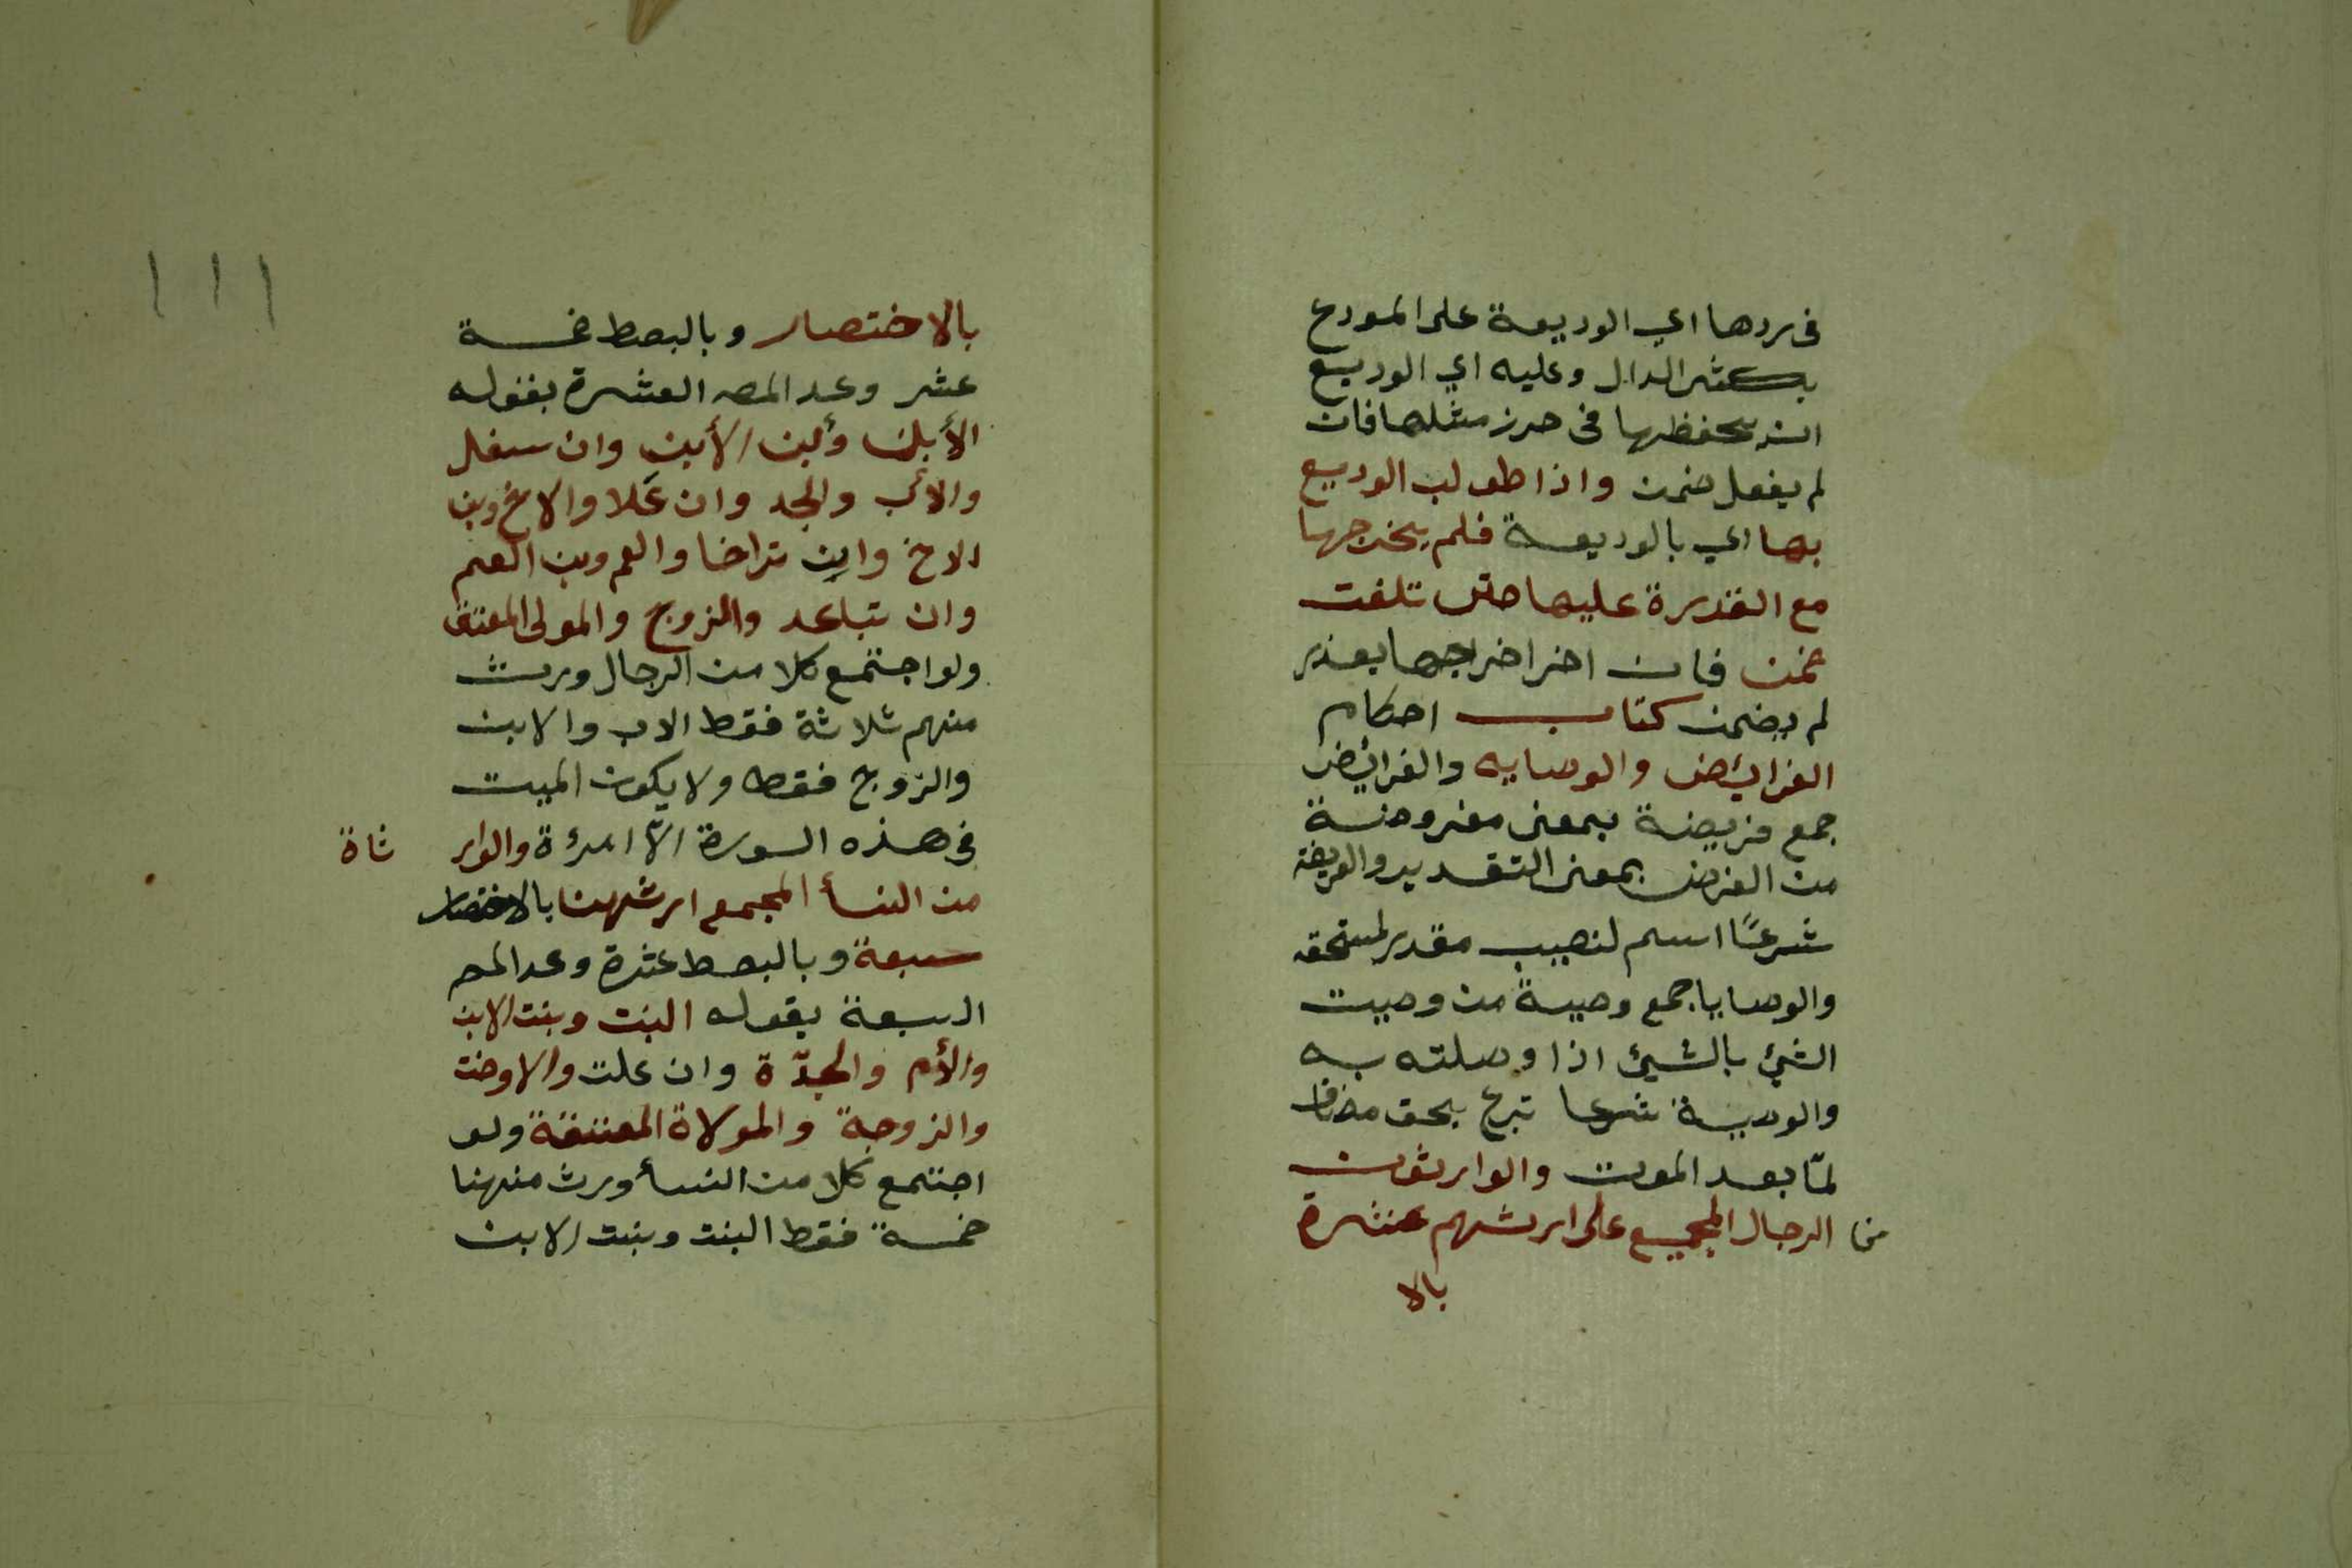 في ردها اي الوديعة على المودع
بكسر الدال وعليه اي الوديع
ان يحفظها في حرز مثلها فان
لم يفعل ضمن واذا طولب الوديع
بها اي بالوديعة فلم يخرجها
مع القدرة عليها حتى تلفت
ضمن فان اخر اخراجها بعذر
لم يضمن كتاب احكام
الفرائض والوصايه والفرائض
جمع فريضة بمعنى مفروضة
من الفرض بمعنى التقدير والفريضة
شرعًا اسم لنصيب مقدر لمستحقه
والوصايا جمع وصية من وصيت
الشيئ بالشيئ اذا وصلته به
والوصية شرعا تبرع بحق مضاف
لمّا بعد الموت والوارثون
من الرجال المجمع على ارثهم عشرة
بالا
١١١
بالاختصار وبالبصط خمسة
عشر وعد المصـ العشرة بقوله
الأبن وأبن الأبن وان سفل
والأب والجد وان عَلا والاخ وبن
الاخ وان تراخا والعم وبن العم
وان تباعد والزوج والمولى المعتق
ولو اجتمع كلا من الرجال ورث
منهم ثلاثة فقط الاب والابن
والزوج فقط ولا يكون الميت
في هذه السورة الاّ امرءة والوار ثاة
من النسأ المجمع ارثهنا بالاختصار
سبعة وبالبصط عشرة وعد المصـ
السبعة بقوله البنت وبنت الابن
والأم والجدّة وان علت والاوخت
والزوجة والمولاة المعتقة ولو
اجتمع كلا من النسأ ورث منهنا
خمسة فقط البنت وبنت الابن